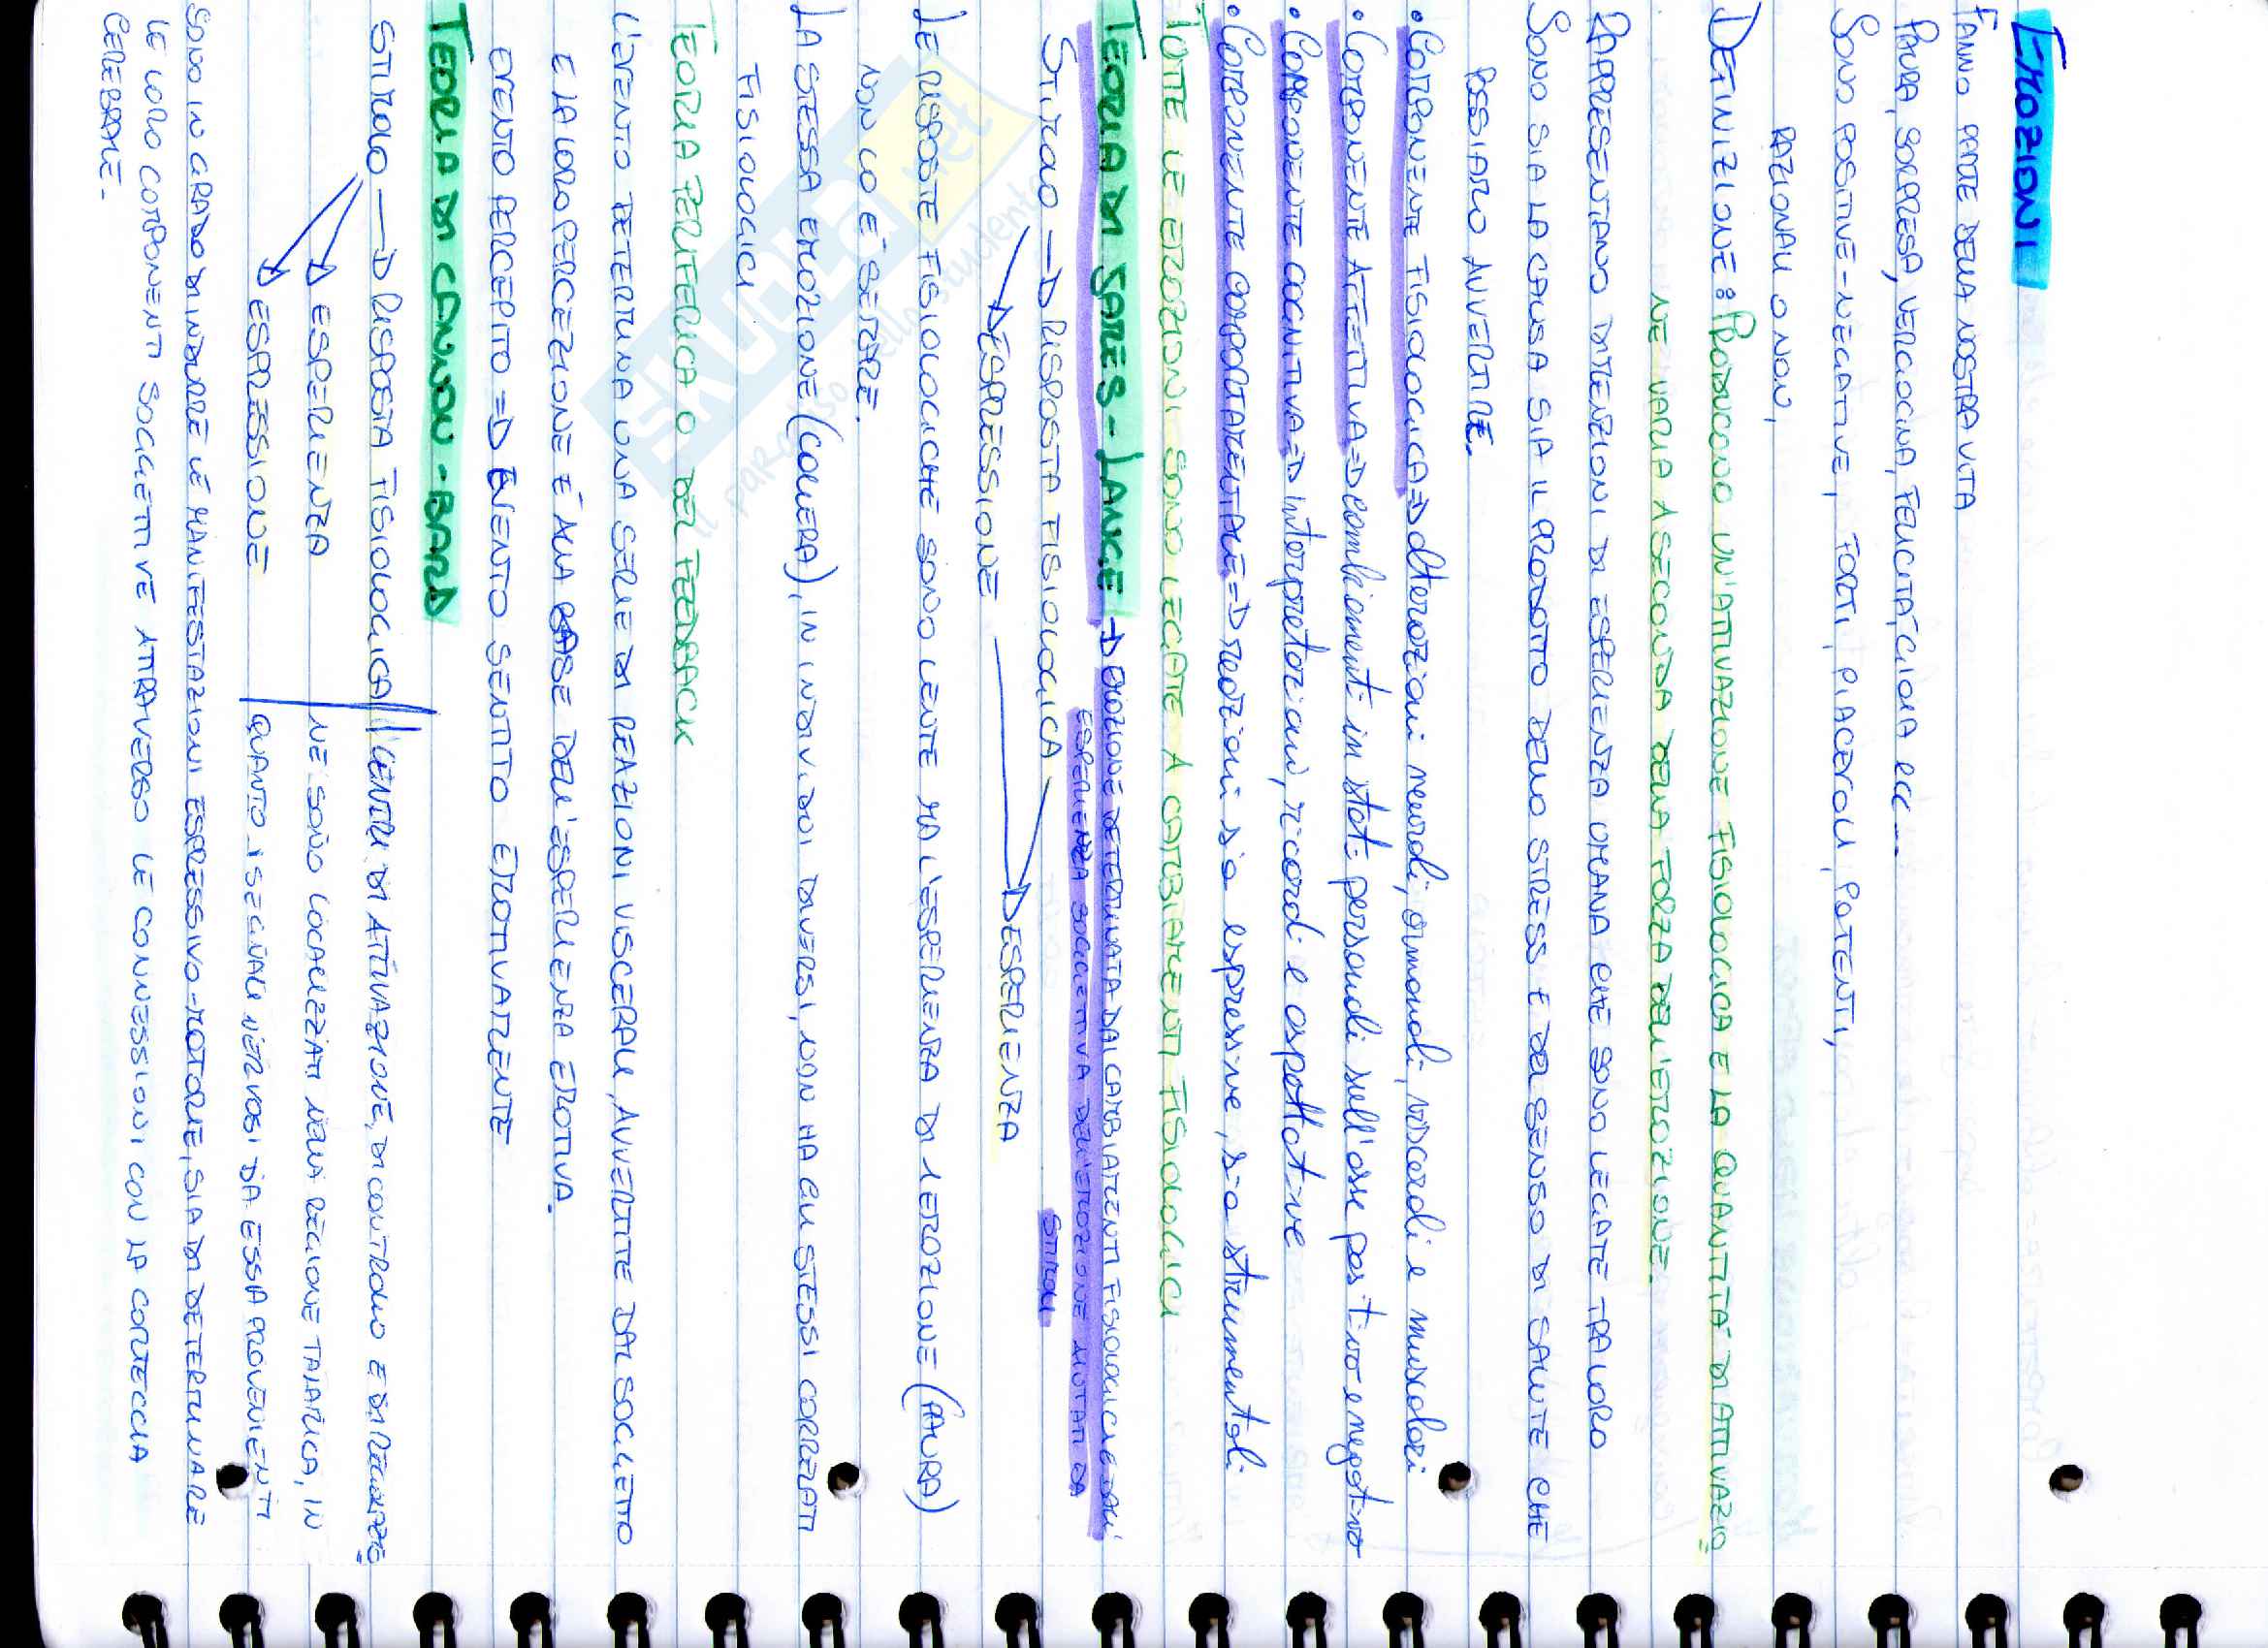 EMOZIONI
FANNO PARTE DELLA NOSTRA VITA
PAURA, SORPRESA, VERGOGNA, FELICITÀ, GIOIA ecc...
SONO POSITIVE-NEGATIVE, FORTI, PIACEVOLI, POTENTI,
RAZIONALI O NON,
DEFINIZIONE: PRODUCONO UN'ATTIVAZIONE FISIOLOGICA E LA QUANTITÀ DI ATTIVAZIO
NE VARIA A SECONDA DELLA FORZA DELL'EMOZIONE.
RAPPRESENTANO DIMENZIONI DI ESPERIENZA UMANA CHE SONO LEGATE TRA LORO
SONO SIA LA CAUSA SIA IL PRODOTTO DELLO STRESS E DEL SENSO DI SALUTE CHE
POSSIAMO AVVERTIRE.
• COMPONENTE FISIOLOGICA => alterazioni neurali, ormonali, viscerali e muscolari
• COMPONENTE AFFETTIVA => cambiamenti in stati personali sull'asse positivo e negativo
• COMPONENTE COGNITIVA => interpretazioni, ricordi e aspettative
• COMPONENTE COMPORTAMENTALE => reazioni sia espressive, sia strumentali
TUTTE LE EMOZIONI SONO LEGATE A CAMBIAMENTI FISIOLOGICI
TEORIA DI JAMES-LANGE → EMOZIONE DETERMINATA DAI CAMBIAMENTI FISIOLOGICI E DALL'
ESPERIENZA SOGGETTIVA DELL'EMOZIONE AIUTATI DA
STIMOLI
STIMOLO → RISPOSTA FISIOLOGICA
ESPRESSIONE
ESPERIENZA
LE RISPOSTE FISIOLOGICHE SONO LENTE MA L'ESPERIENZA DI 1 EMOZIONE (PAURA)
NON LO È SEMPRE.
LA STESSA EMOZIONE (COLLERA), IN INDIVIDUI DIVERSI, NON HA GLI STESSI CORRELATI
FISIOLOGICI
TEORIA PERIFERICA O DEL FEEDBACK
L'EVENTO DETERMINA UNA SERIE DI REAZIONI VISCERALI, AVVERTITE DAL SOGGETTO
E LA LORO PERCEZIONE È ALLA BASE DELL'ESPERIENZA EMOTIVA.
EVENTO PERCEPITO => EVENTO SENTITO EMOTIVAMENTE
TEORIA DI CANNON-BARD
STIMOLO → RISPOSTA FISIOLOGICA
ESPERIENZA
ESPRESSIONE
I CENTRI DI ATTIVAZIONE, DI CONTROLLO E DI REGOLAZIO
NE SONO LOCALIZZATI NELLA REGIONE TALAMICA, IN
QUANTO I SEGNALI NERVOSI DA ESSA PROVENIENTI
SONO IN GRADO DI INDURRE LE MANIFESTAZIONI ESPRESSIVO-MOTORIE, SIA DI DETERMINARE
LE LORO COMPONENTI SOGGETTIVE ATTRAVERSO LE CONNESSIONI CON LA CORTECCIA
CEREBRALE.
SKUOLA.net
il paradiso dello studente